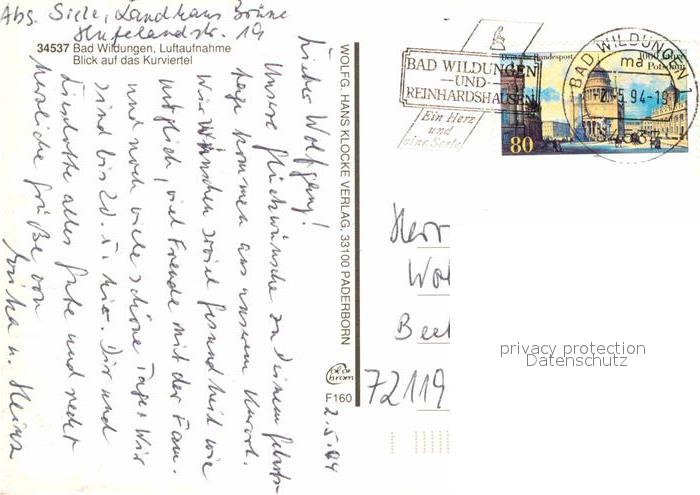 Abs. Siele, Landhaus Brüne
Hufelandstr. 19
34537 Bad Wildungen, Luftaufnahme
Blick auf das Kurviertel
Lieber Wolfgang!
Unsere Glückwünsche zu Deinem Geburts-
tage kommen aus unserem Kurort.
Wir wünschen soviel Gesundheit wie
möglich, viel Freude mit der Fam.
und noch viele schöne Tage. Wir
sind bis 20. 5. hier. Dir und
Lieselotte alles Gute und recht
herzliche Grüße von
Erika u. Heinz
2.5.94
WOLFG. HANS KLOCKE VERLAG, 33100 PADERBORN
F160
BAD WILDUNGEN
-UND-
REINHARDSHAUSEN
Ein Herz
und
eine Seele
Deutsche Bundespost
1000 Jahre
Potsdam
80
BAD WILDUNGEN 1
ma
-2.-5.94-18
Herr
Wol
Beet
72119
privacy protection
Datenschutz